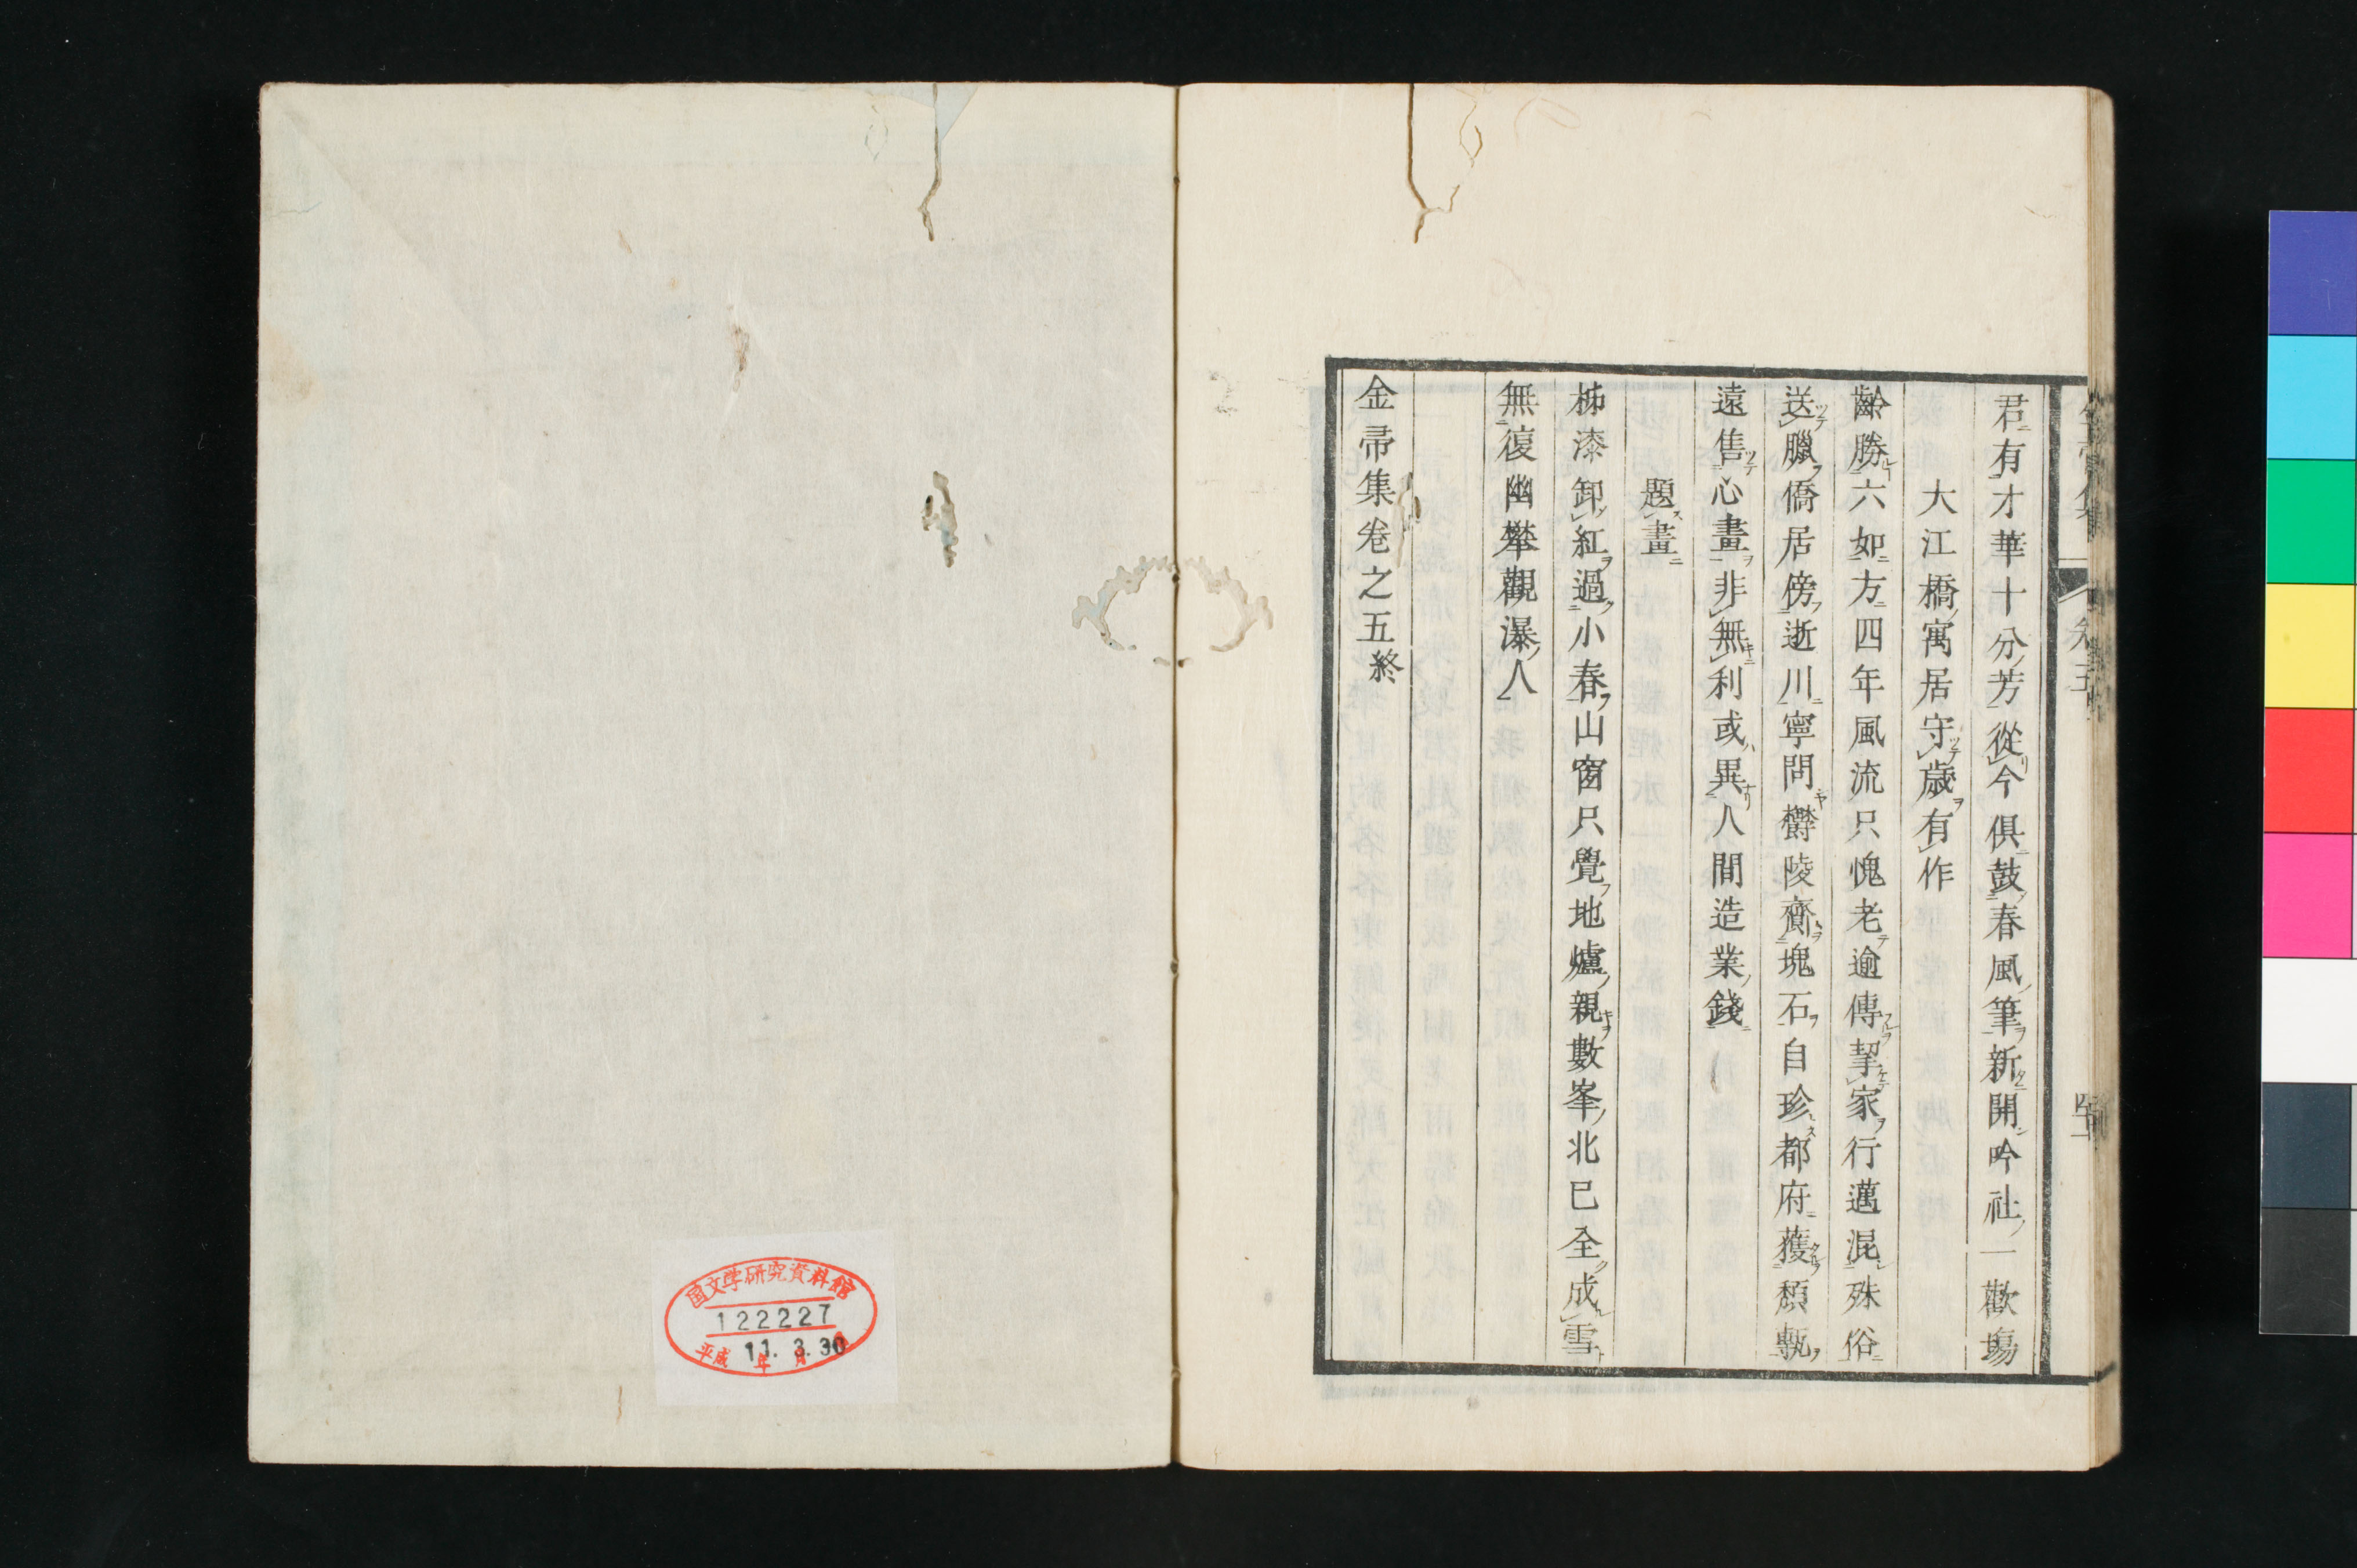 君有才華十分芳從今俱鼓春風筆新開吟社一歡塲
大江橋寓居守歳有作
齡勝六如方四年風流只愧老逾傳挈家行邁混殊俗
送臘僑居傍逝川寧問欝陵齎塊石自珍都府獲頽甎
遠售心畫非無利或異人間造業錢
題畫
柹漆卸紅過小春山窗只覺地爐親數峯北已全成雪
無復幽攀觀瀑人
金帚集卷之五終
国文学研究資料館
122227
平成 11年 3月 30